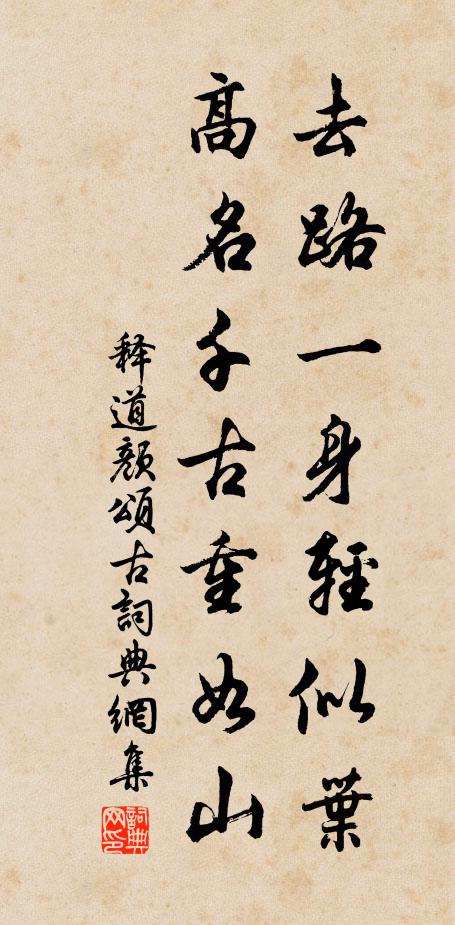 去路一身輕似葉
高名千古重如山
释道顏頌古詞典網集
詞典
网印